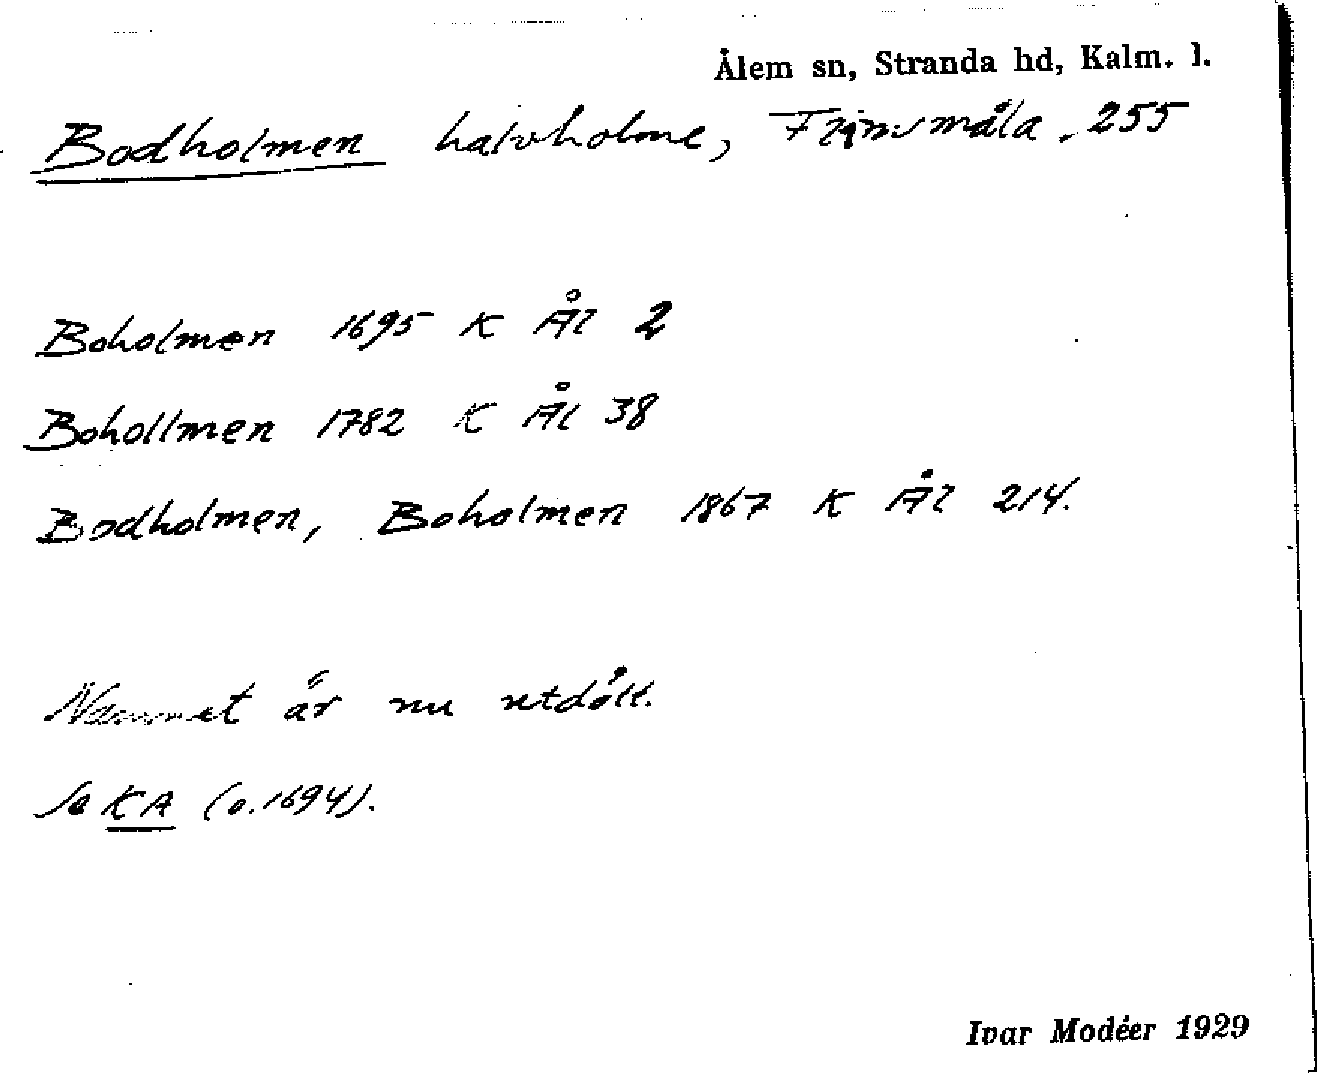 Ålem sn, Stranda hd, Kalm. l.
Bodholmen halvholme, Frönsmåla. 255
Boholmen 1695 K Ål 2
Bohollmen 1782 K Ål 38
Bodholmen, Boholmen 1867 K Ål 214.
Namnet är nu utdött.
Se KA (o. 1694).
Ivar Modéer 1929